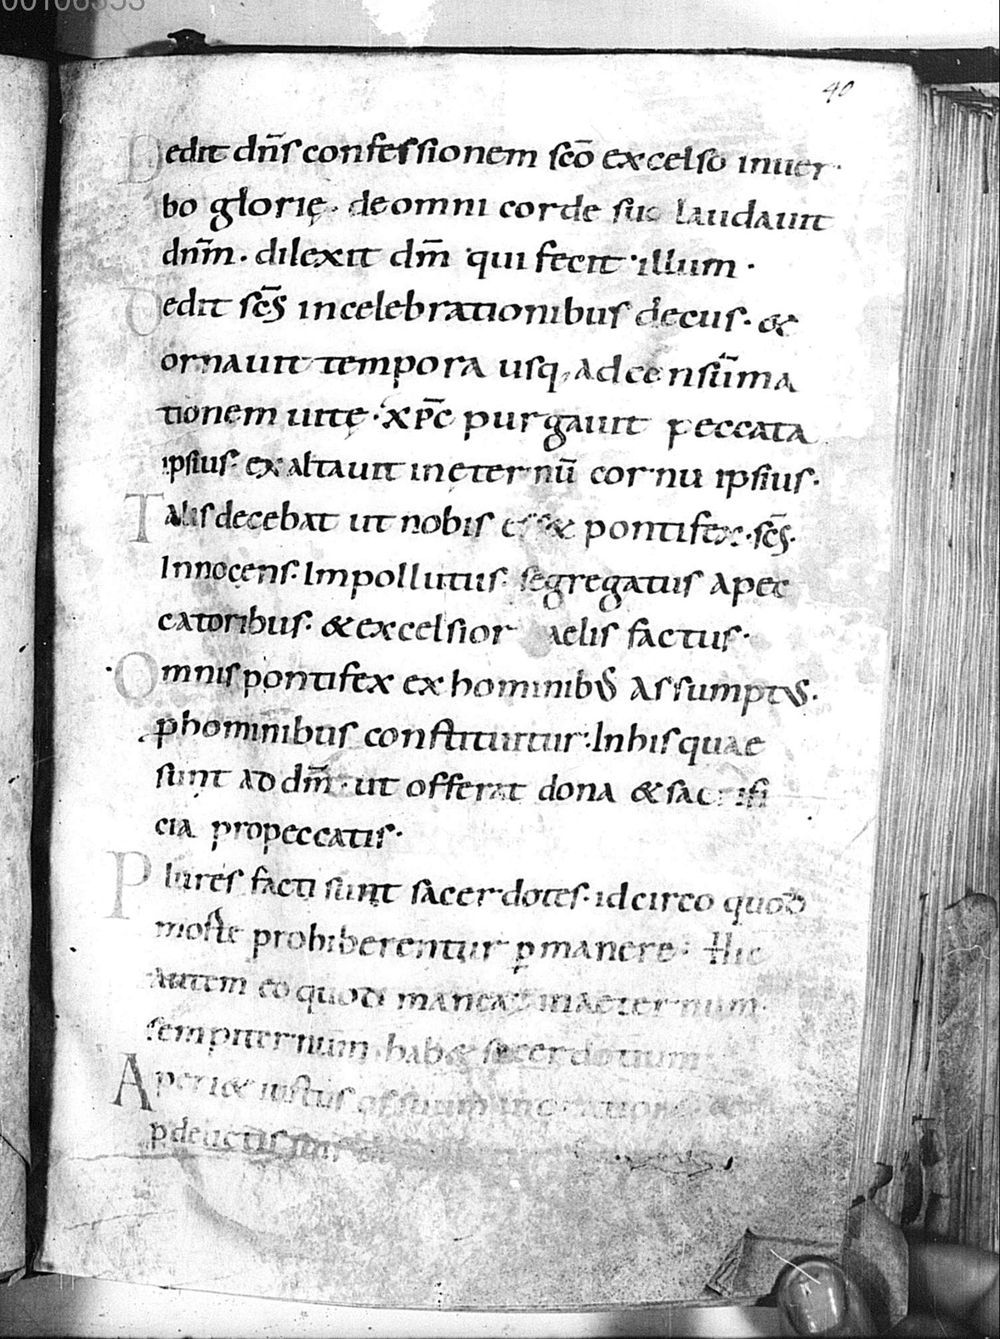 00106353
40
Dedit dñs confessionem sc̄o excelso inuer
bo glorię. deomni corde suo laudauit
dnm̄. dilexit dm̄ qui fecit illum.
Dedit sc̄s incelebrationibus decus. &
ornauit tempora usq, adconsūma
tionem uitę. xp̄c purgauit peccata
ipsius. exaltauit inęternū cornu ipsius.
Talis decebat ut nobis ess& pontifex. sc̄s.
Innocens. Impollutus. segregatus apec
catoribus. & excelsior caelis factus.
Omnis pontifex ex hominib; assumpt;.
ꝓhominibus constituitur. Inhis quae
sunt ad dm̄. ut offerat dona & sacrifi
cia propeccatis.
Plures facti sunt sacerdotes. idcirco quod
morte prohiberentur ꝑmanere. Hic
autem eo quod manea& inaeternum
sempiternum hab& sacerdotium
Aperi& iustus os suum in oratione
ꝓdelictis suis